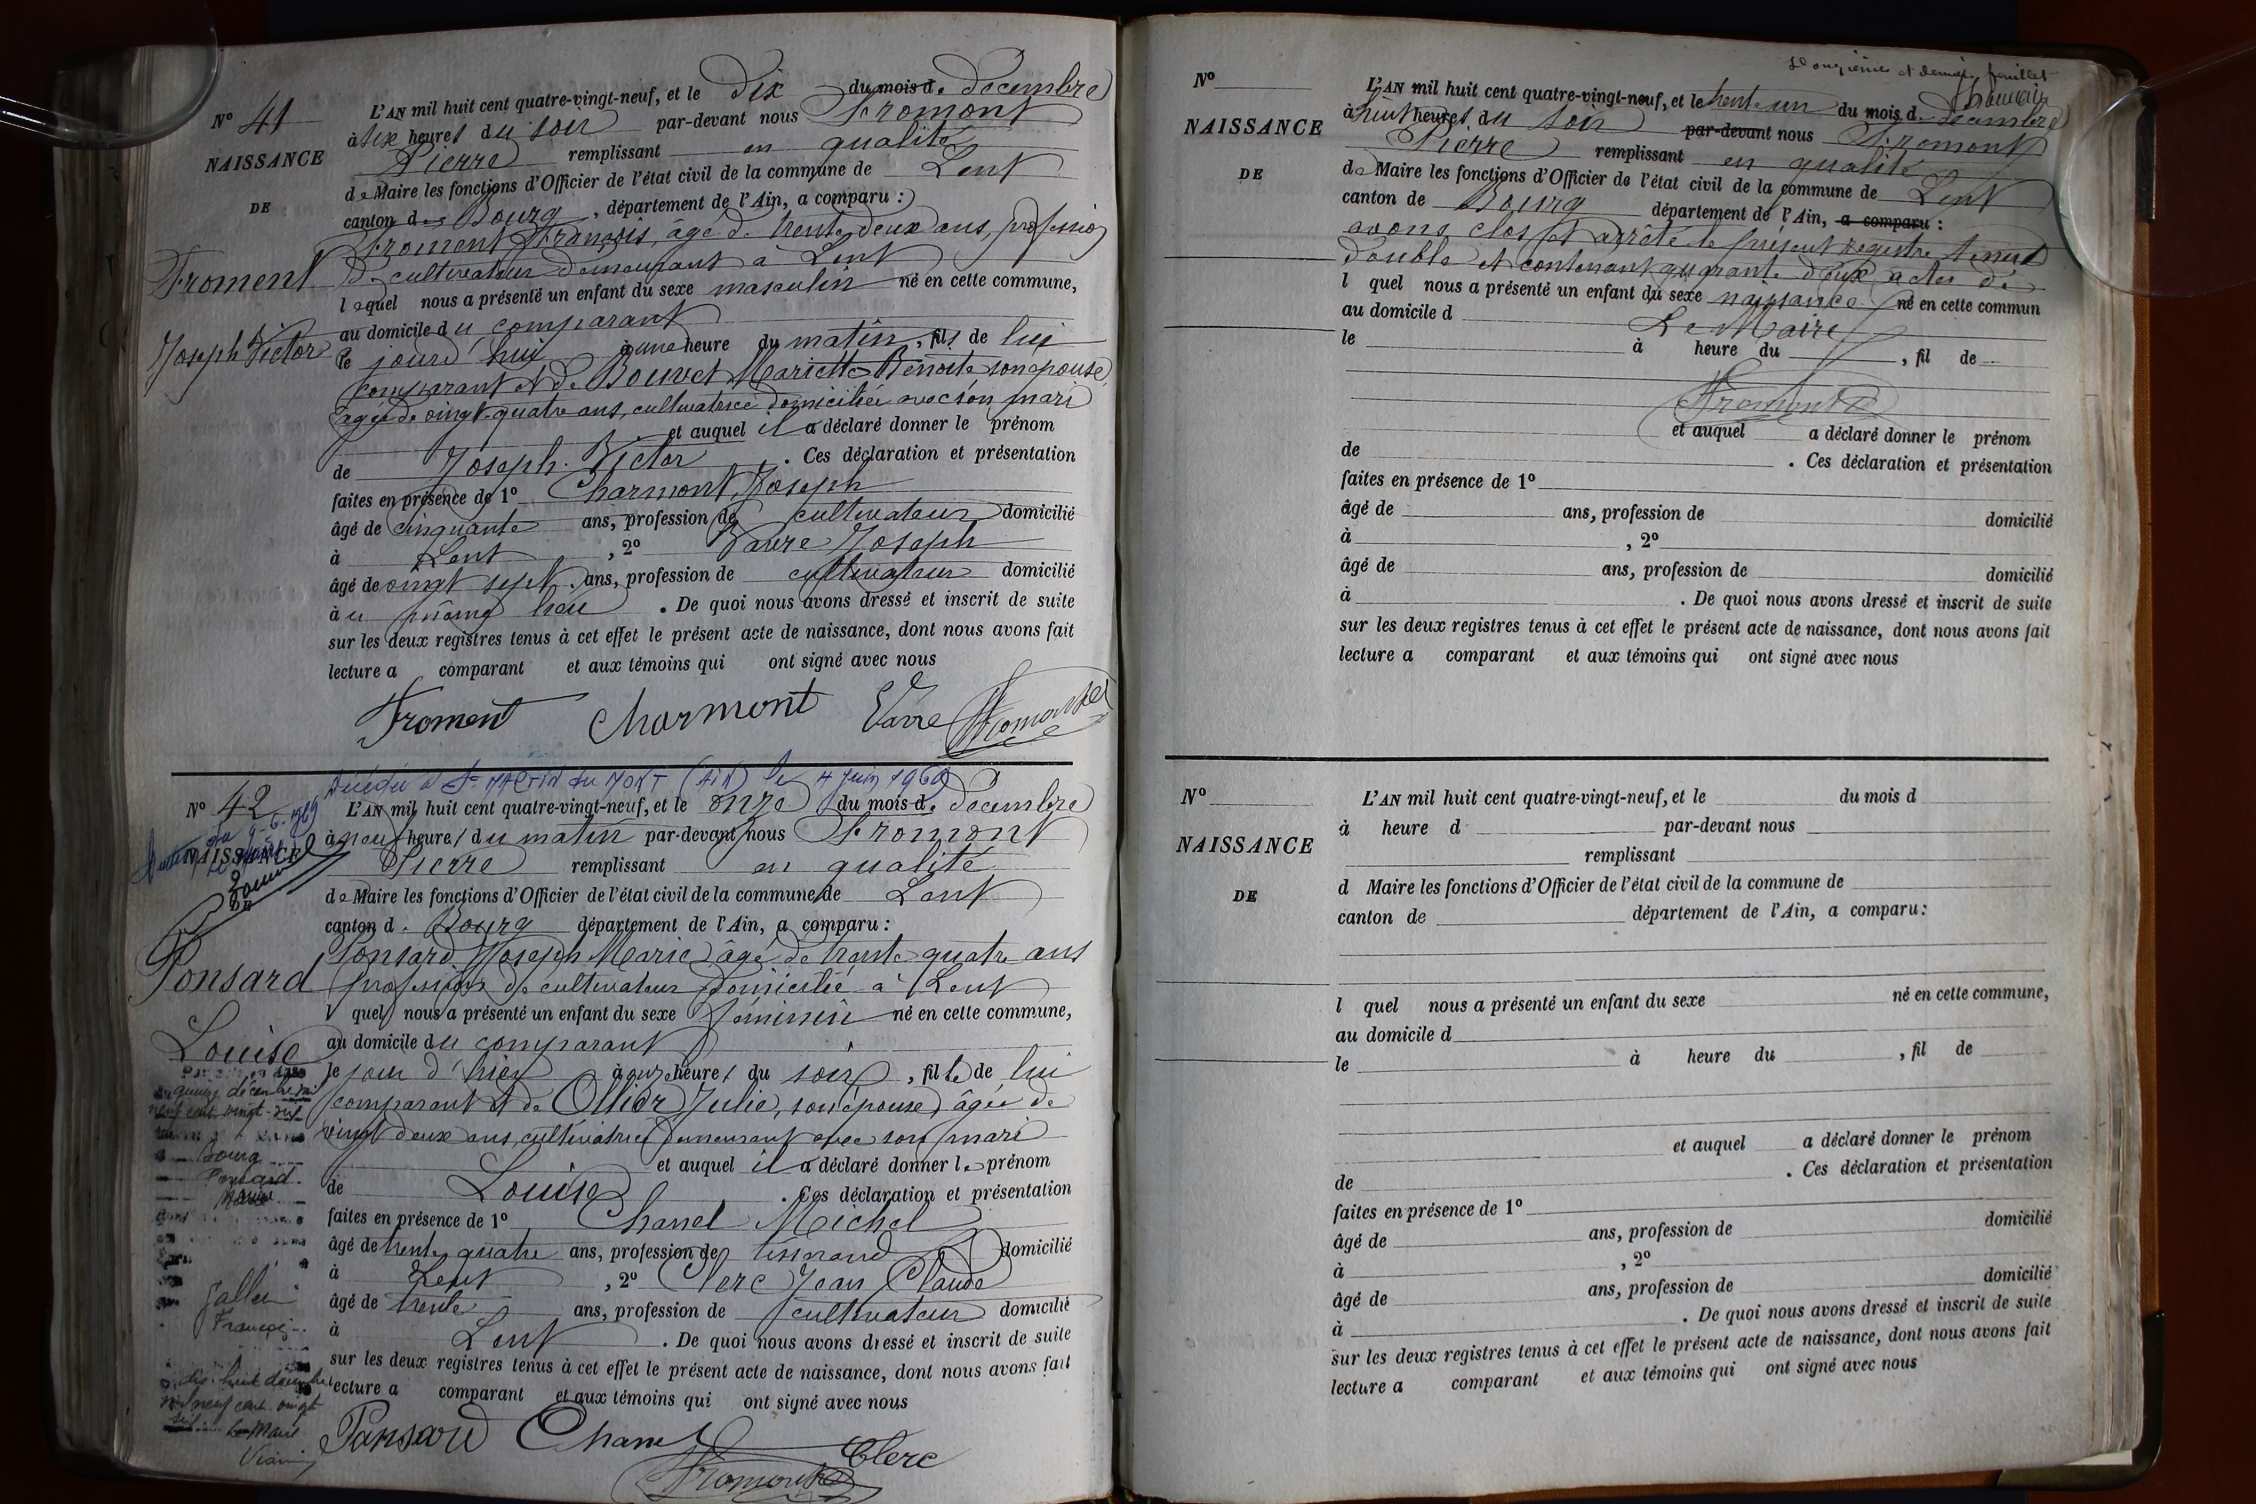 N° 41
NAISSANCE
DE
Froment
Joseph Victor
L'AN mil huit cent quatre-vingt-neuf, et le dix du mois de décembre
à six heures du soir par-devant nous Fromont
Pierre remplissant en qualité
de Maire les fonctions d'Officier de l'état civil de la commune de Lent
canton de Bourg, département de l'Ain, a comparu :
Froment François, âgé de trente deux ans, profession
de cultivateur demeurant à Lent
lequel nous a présenté un enfant du sexe masculin né en cette commune,
au domicile du comparant
le jourd'hui à une heure du matin, fils de lui
comparant et de Bouvet Mariette Benoîte son épouse
âgée de vingt-quatre ans, cultivatrice domiciliée avec son mari
et auquel il a déclaré donner le prénom
de Joseph Victor. Ces déclaration et présentation
faites en présence de 1° Charmont Joseph
âgé de cinquante ans, profession de cultivateur domicilié
à Lent, 2° Varre Joseph
âgé de vingt sept ans, profession de cultivateur domicilié
au même lieu. De quoi nous avons dressé et inscrit de suite
sur les deux registres tenus à cet effet le présent acte de naissance, dont nous avons fait
lecture a comparant et aux témoins qui ont signé avec nous
Froment Charmont Varre Fromont
Décédée à St MARTIN du MONT (AIN) le 4 juin 1969
N° 42
NAISSANCE
DE
Ponsard
Louise
L'AN mil huit cent quatre-vingt-neuf, et le onze du mois de décembre
à neuf heures du matin par-devant nous Fromont
Pierre remplissant en qualité
de Maire les fonctions d'Officier de l'état civil de la commune de Lent
canton de Bourg département de l'Ain, a comparu :
Ponsard Joseph Marie âgé de trente quatre ans
profession de cultivateur domicilié à Lent
l quel nous a présenté un enfant du sexe féminin né en cette commune,
au domicile du comparant
le jour d'hier à onze heures du soir, fille de lui
comparant et de Ollier Julie, son épouse âgée de
vingt deux ans, cultivatrice demeurant avec son mari
et auquel il a déclaré donner le prénom
de Louise. Ces déclaration et présentation
faites en présence de 1° Chanel Michel
âgé de trente quatre ans, profession de tisserand domicilié
à Lent, 2° Clerc Jean Claude
âgé de trente ans, profession de cultivateur domicilié
à Lent. De quoi nous avons dressé et inscrit de suite
sur les deux registres tenus à cet effet le présent acte de naissance, dont nous avons fait
lecture a comparant et aux témoins qui ont signé avec nous
Ponsard Chanel Clerc
Fromont
quinze décembre mil
neuf cent vingt-six
Bourg
Ponsard
Gallet
François
dix huit décembre
mil neuf cent vingt
six
Le Maire
Douzième et dernier feuillet
N°
NAISSANCE
DE
L'AN mil huit cent quatre-vingt-neuf, et le trente un du mois de décembre
à huit heures du soir par-devant nous Fromont
Pierre remplissant en qualité
de Maire les fonctions d'Officier de l'état civil de la commune de Lent
canton de Bourg département de l'Ain, a comparu :
avons clos et arrêté le présent registre tenu
double et contenant quarante deux actes de
l quel nous a présenté un enfant du sexe naissance né en cette commun
au domicile d Le Maire
le à heure du , fil de
Fromont
et auquel a déclaré donner le prénom
de . Ces déclaration et présentation
faites en présence de 1°
âgé de ans, profession de domicilié
à , 2°
âgé de ans, profession de domicilié
à . De quoi nous avons dressé et inscrit de suite
sur les deux registres tenus à cet effet le présent acte de naissance, dont nous avons fait
lecture a comparant et aux témoins qui ont signé avec nous
N°
NAISSANCE
DE
L'AN mil huit cent quatre-vingt-neuf, et le du mois d
à heure d par-devant nous
remplissant
d Maire les fonctions d'Officier de l'état civil de la commune de
canton de département de l'Ain, a comparu :
l quel nous a présenté un enfant du sexe né en cette commune,
au domicile d
le à heure du , fil de
et auquel a déclaré donner le prénom
de . Ces déclaration et présentation
faites en présence de 1°
âgé de ans, profession de domicilié
à , 2°
âgé de ans, profession de domicilié
à . De quoi nous avons dressé et inscrit de suite
sur les deux registres tenus à cet effet le présent acte de naissance, dont nous avons fait
lecture a comparant et aux témoins qui ont signé avec nous